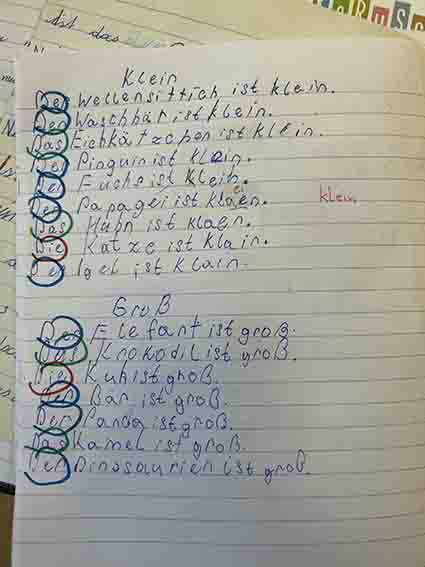 ist das
Klein
Der Wellensittich ist klein.
Der Waschbär ist klein.
Das Eichkätzchen ist klein.
Der Pinguin ist klein.
Der Fuchs ist klein.
Der Papagei ist klaen.
ei
klein
Das Huhn ist klaen.
Die Katze ist klain.
Der Igel ist klain.
Groß
Der Elefant ist groß.
Das Krokodil ist groß.
Die Kuh ist groß.
Der Bär ist groß.
Der Panda ist groß.
Das Kamel ist groß.
Der Dinosaurier ist groß.